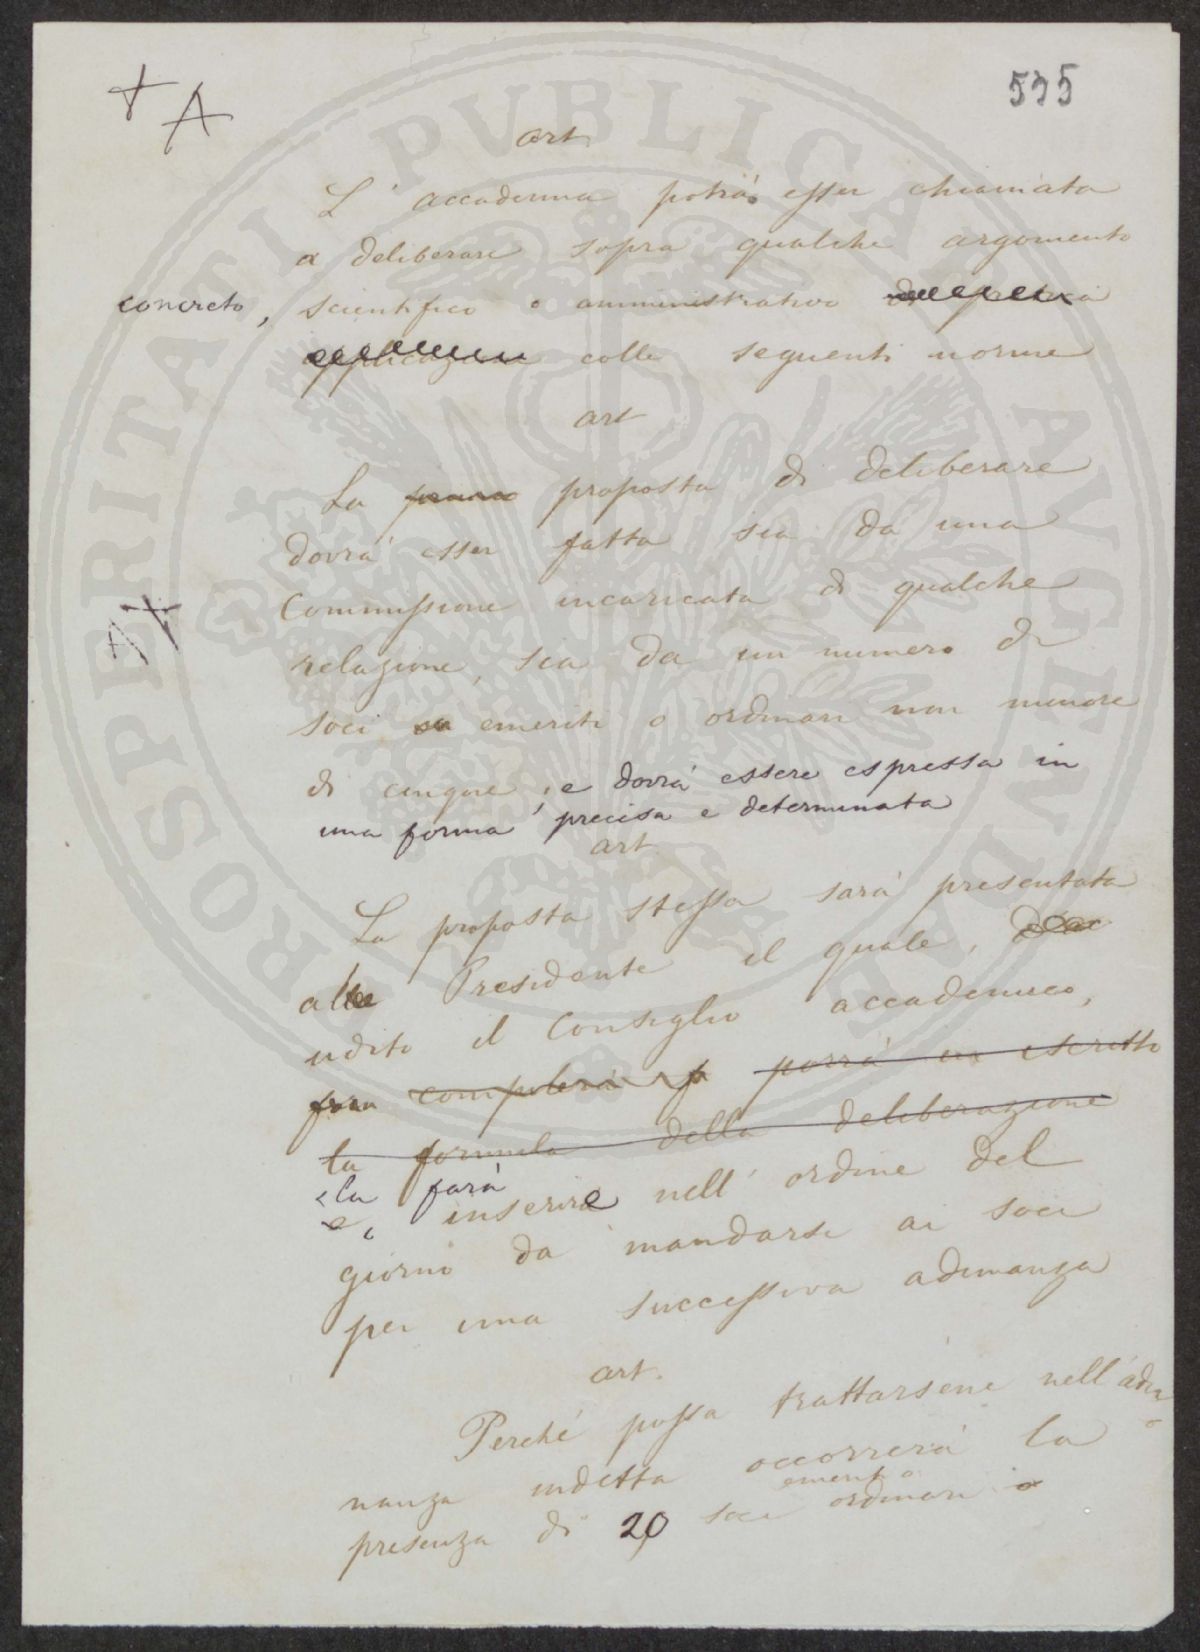 535
+ A
art
L'accademia potrà esser chiamata
a deliberare sopra qualche argomento
concreto, scientifico o amministrativo di pratica
applicazione colle seguenti norme
art
La proposta di deliberare
dovrà esser fatta sia da una
Commissione incaricata di qualche
relazione, sia da un numero di
soci emeriti o ordinari non minore
di cinque, e dovrà essere espressa in
una forma precisa e determinata
art
La proposta stessa sarà presentata
al Presidente il quale,
udito il Consiglio accademico,
porrà in iscritto
la formula della deliberazione
la farà
e, inserire nell'ordine del
giorno da mandarsi ai soci
per una successiva adunanza
art.
Perché possa trattarsene nell'adu
nanza indetta occorrerà la
emeriti o
presenza di 20 soci ordinari o
PROSPERITATI PVBLICAE AVGENDAE